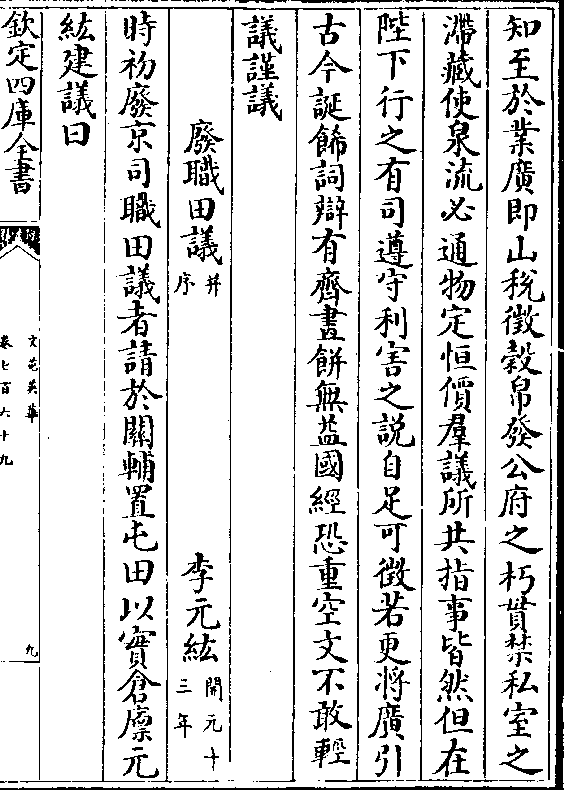 知至於業廣即山稅徵穀帛發公府之朽貫禁私室之
滯藏使泉流必通物定恒價羣議所共指事皆然但在
陛下行之有司遵守利害之説自足可徵若更將廣引
古今誕飾詞辯有齊畫餅無益國經恐重空文不敢輕
議謹議
廢職田議并序 李元紘開元十三年
時初廢京司職田議者請於關輔置屯田以實倉廩元
紘建議曰
欽定四庫全書
文苑英華
卷七百六十九
九